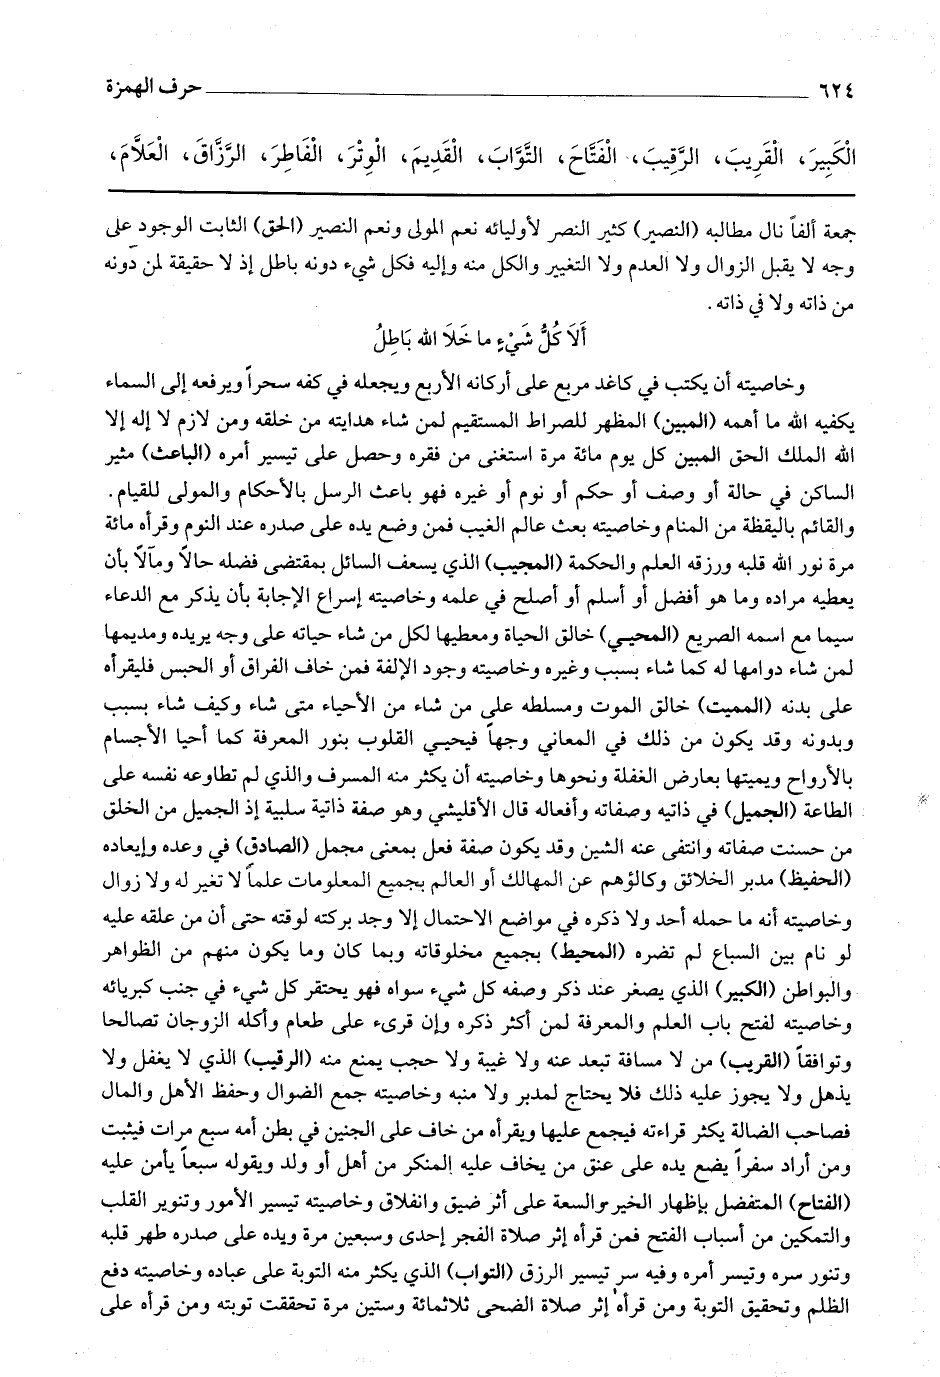 ٦٢٤ حرف الهمزة
الْكَبِيرَ، الْقَرِيبَ، الرَّقِيبَ، الْفَتَّاحَ، التَّوَّابَ، الْقَدِيمَ، الْوِتْرَ، الْفَاطِرَ، الرَّزَّاقَ، الْعَلَّامَ،
جمعة ألفاً نال مطالبه (النصير) كثير النصر لأوليائه نعم المولى ونعم النصير (الحق) الثابت الوجود على
وجه لا يقبل الزوال ولا العدم ولا التغيير والكل منه وإليه فكل شيء دونه باطل إذ لا حقيقة لمن دونه
من ذاته ولا في ذاته.
أَلَا كُلُّ شَيْءٍ ما خَلَا الله بَاطِلُ
وخاصيته أن يكتب في كاغد مربع على أركانه الأربع ويجعله في كفه سحراً ويرفعه إلى السماء
يكفيه الله ما أهمه (المبين) المظهر للصراط المستقيم لمن شاء هدايته من خلقه ومن لازم لا إله إلا
الله الملك الحق المبين كل يوم مائة مرة استغنى من فقره وحصل على تيسير أمره (الباعث) مثير
الساكن في حالة أو وصف أو حكم أو نوم أو غيره فهو باعث الرسل بالأحكام والمولى للقيام.
والقائم باليقظة من المنام وخاصيته بعث عالم الغيب فمن وضع يده على صدره عند النوم وقرأه مائة
مرة نور الله قلبه ورزقه العلم والحكمة (المجيب) الذي يسعف السائل بمقتضى فضله حالاً ومآلاً بأن
يعطيه مراده وما هو أفضل أو أسلم أو أصلح في علمه وخاصيته إسراع الإجابة بأن يذكر مع الدعاء
سيما مع اسمه الصريع (المحيي) خالق الحياة ومعطيها لكل من شاء حياته على وجه يريده ومديمها
لمن شاء دوامها له كما شاء بسبب وغيره وخاصيته وجود الإلفة فمن خاف الفراق أو الحبس فليقرأه
على بدنه (المميت) خالق الموت ومسلطه على من شاء من الأحياء متى شاء وكيف شاء بسبب
وبدونه وقد يكون من ذلك في المعاني وجهاً فيحيي القلوب بنور المعرفة كما أحيا الأجسام
بالأرواح ويميتها بعارض الغفلة ونحوها وخاصيته أن يكثر منه المسرف والذي لم تطاوعه نفسه على
الطاعة (الجميل) في ذاتيه وصفاته وأفعاله قال الأقليشي وهو صفة ذاتية سلبية إذ الجميل من الخلق
من حسنت صفاته وانتفى عنه الشين وقد يكون صفة فعل بمعنى مجمل (الصادق) في وعده وإيعاده
(الحفيظ) مدبر الخلائق وكالؤهم عن المهالك أو العالم بجميع المعلومات علماً لا تغير له ولا زوال
وخاصيته أنه ما حمله أحد ولا ذكره في مواضع الاحتمال إلا وجد بركته لوقته حتى أن من علقه عليه
لو نام بين السباع لم تضره (المحيط) بجميع مخلوقاته وبما كان وما يكون منهم من الظواهر
والبواطن (الكبير) الذي يصغر عند ذكر وصفه كل شيء سواه فهو يحتقر كل شيء في جنب كبريائه
وخاصيته لفتح باب العلم والمعرفة لمن أكثر ذكره وإن قرىء على طعام وأكله الزوجان تصالحا
وتوافقاً (القريب) من لا مسافة تبعد عنه ولا غيبة ولا حجب يمنع منه (الرقيب) الذي لا يغفل ولا
يذهل ولا يجوز عليه ذلك فلا يحتاج لمدبر ولا منبه وخاصيته جمع الضوال وحفظ الأهل والمال
فصاحب الضالة يكثر قراءته فيجمع عليها ويقرأه من خاف على الجنين في بطن أمه سبع مرات فيثبت
ومن أراد سفراً يضع يده على عنق من يخاف عليه المنكر من أهل أو ولد ويقوله سبعاً يأمن عليه
(الفتاح) المتفضل بإظهار الخير والسعة على أثر ضيق وانفلاق وخاصيته تيسير الأمور وتنوير القلب
والتمكين من أسباب الفتح فمن قرأه إثر صلاة الفجر إحدى وسبعين مرة ويده على صدره طهر قلبه
وتنور سره وتيسر أمره وفيه سر تيسير الرزق (التواب) الذي يكثر منه التوبة على عباده وخاصيته دفع
الظلم وتحقيق التوبة ومن قرأه إثر صلاة الضحى ثلاثمائة وستين مرة تحققت توبته ومن قرأه على